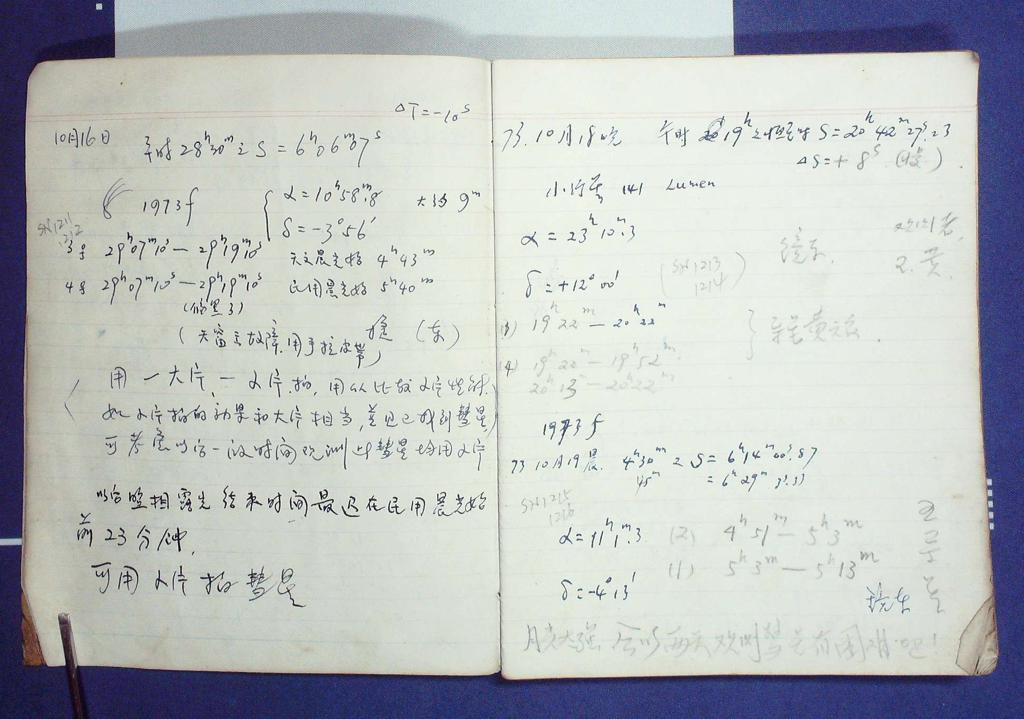 ΔT=-10ˢ
10月16日 平时28ʰ30ᵐ之S=6ʰ06ᵐ07ˢ
1973f α=10ʰ58ᵐ.8 大约9ᵐ
δ=-3°56′
SH1211
1212
3号 29ʰ07ᵐ10ˢ—29ʰ19ᵐ10ˢ 天文晨光始 4ʰ43ᵐ
4号 29ʰ07ᵐ10ˢ—29ʰ19ᵐ10ˢ 民用晨光始 5ʰ40ᵐ
(天窗 故障,用手拉皮带) (东)
用一大片一小片拍,用以比较小片性能
如小片拍的效果和大片相当,并且已找到彗星,
可考虑以后一段时间观测此彗星均用小片
以后照相露光结束时间最迟在民用晨光始
前23分钟.
可用小片拍彗星
73.10月18晚 平时19ʰ之恒星时S=20ʰ42ᵐ27ˢ.23
ΔS=+8ˢ
小行星 141 Lumen
α=23ʰ10ᵐ.3
δ=+12°00′ (SH1213
1214)
(3) 19ʰ22ᵐ—20ʰ22ᵐ
(4) 19ʰ22ᵐ—19ʰ52ᵐ
20ʰ13ᵐ—20ʰ22ᵐ
1973f
73 10月19晨. 4ʰ30ᵐ之S=6ʰ14ᵐ00ˢ.87
45ᵐ =6ʰ29ᵐ3ˢ.33
SH1215
1216
α=11ʰ1ᵐ.3 (2) 4ʰ51ᵐ—5ʰ3ᵐ
(1) 5ʰ3ᵐ—5ʰ13ᵐ
δ=-4°13′
月光太强 后几天观测彗星有困难吧!